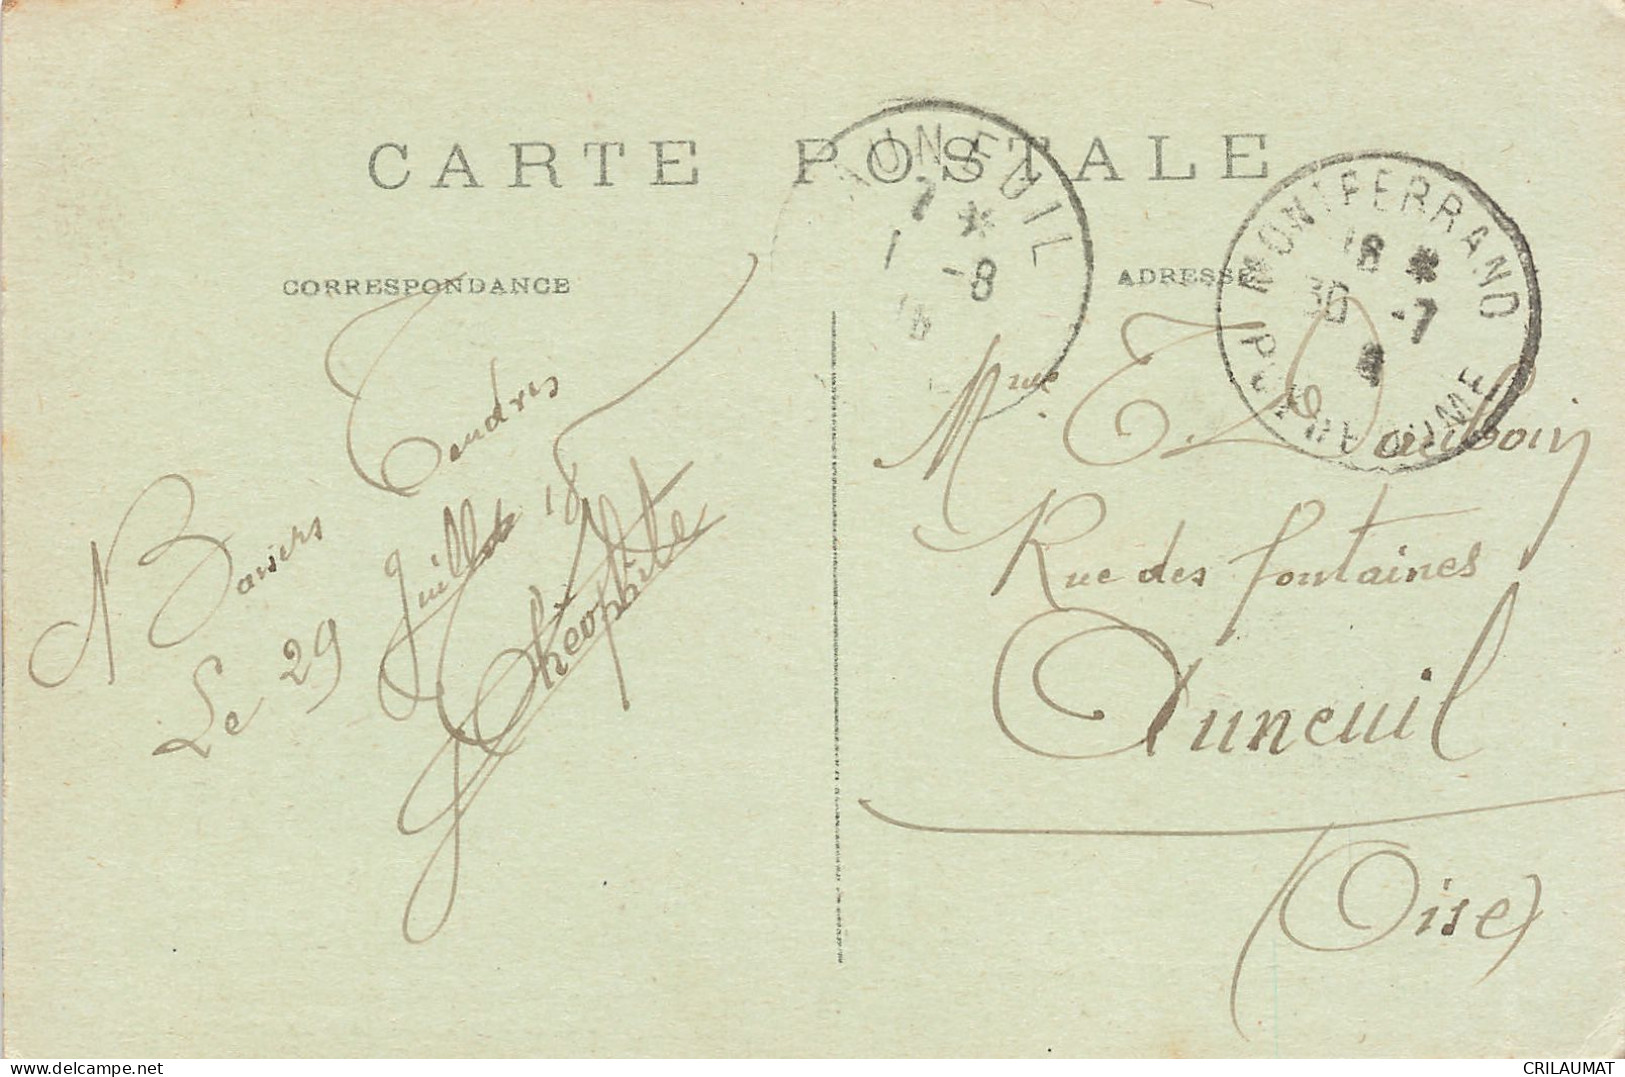 CARTE POSTALE
CORRESPONDANCE
ADRESSE
AUNEUIL
7 *
1 -8
18
MONTFERRAND
18 *
30 -7
PUY DE DOME
Tendres
Baisers
Le 29 Juillet 18
Théophite
Mme E Dauboin
Rue des fontaines
Auneuil
(Oise)
delcampe.net
CRILAUMAT